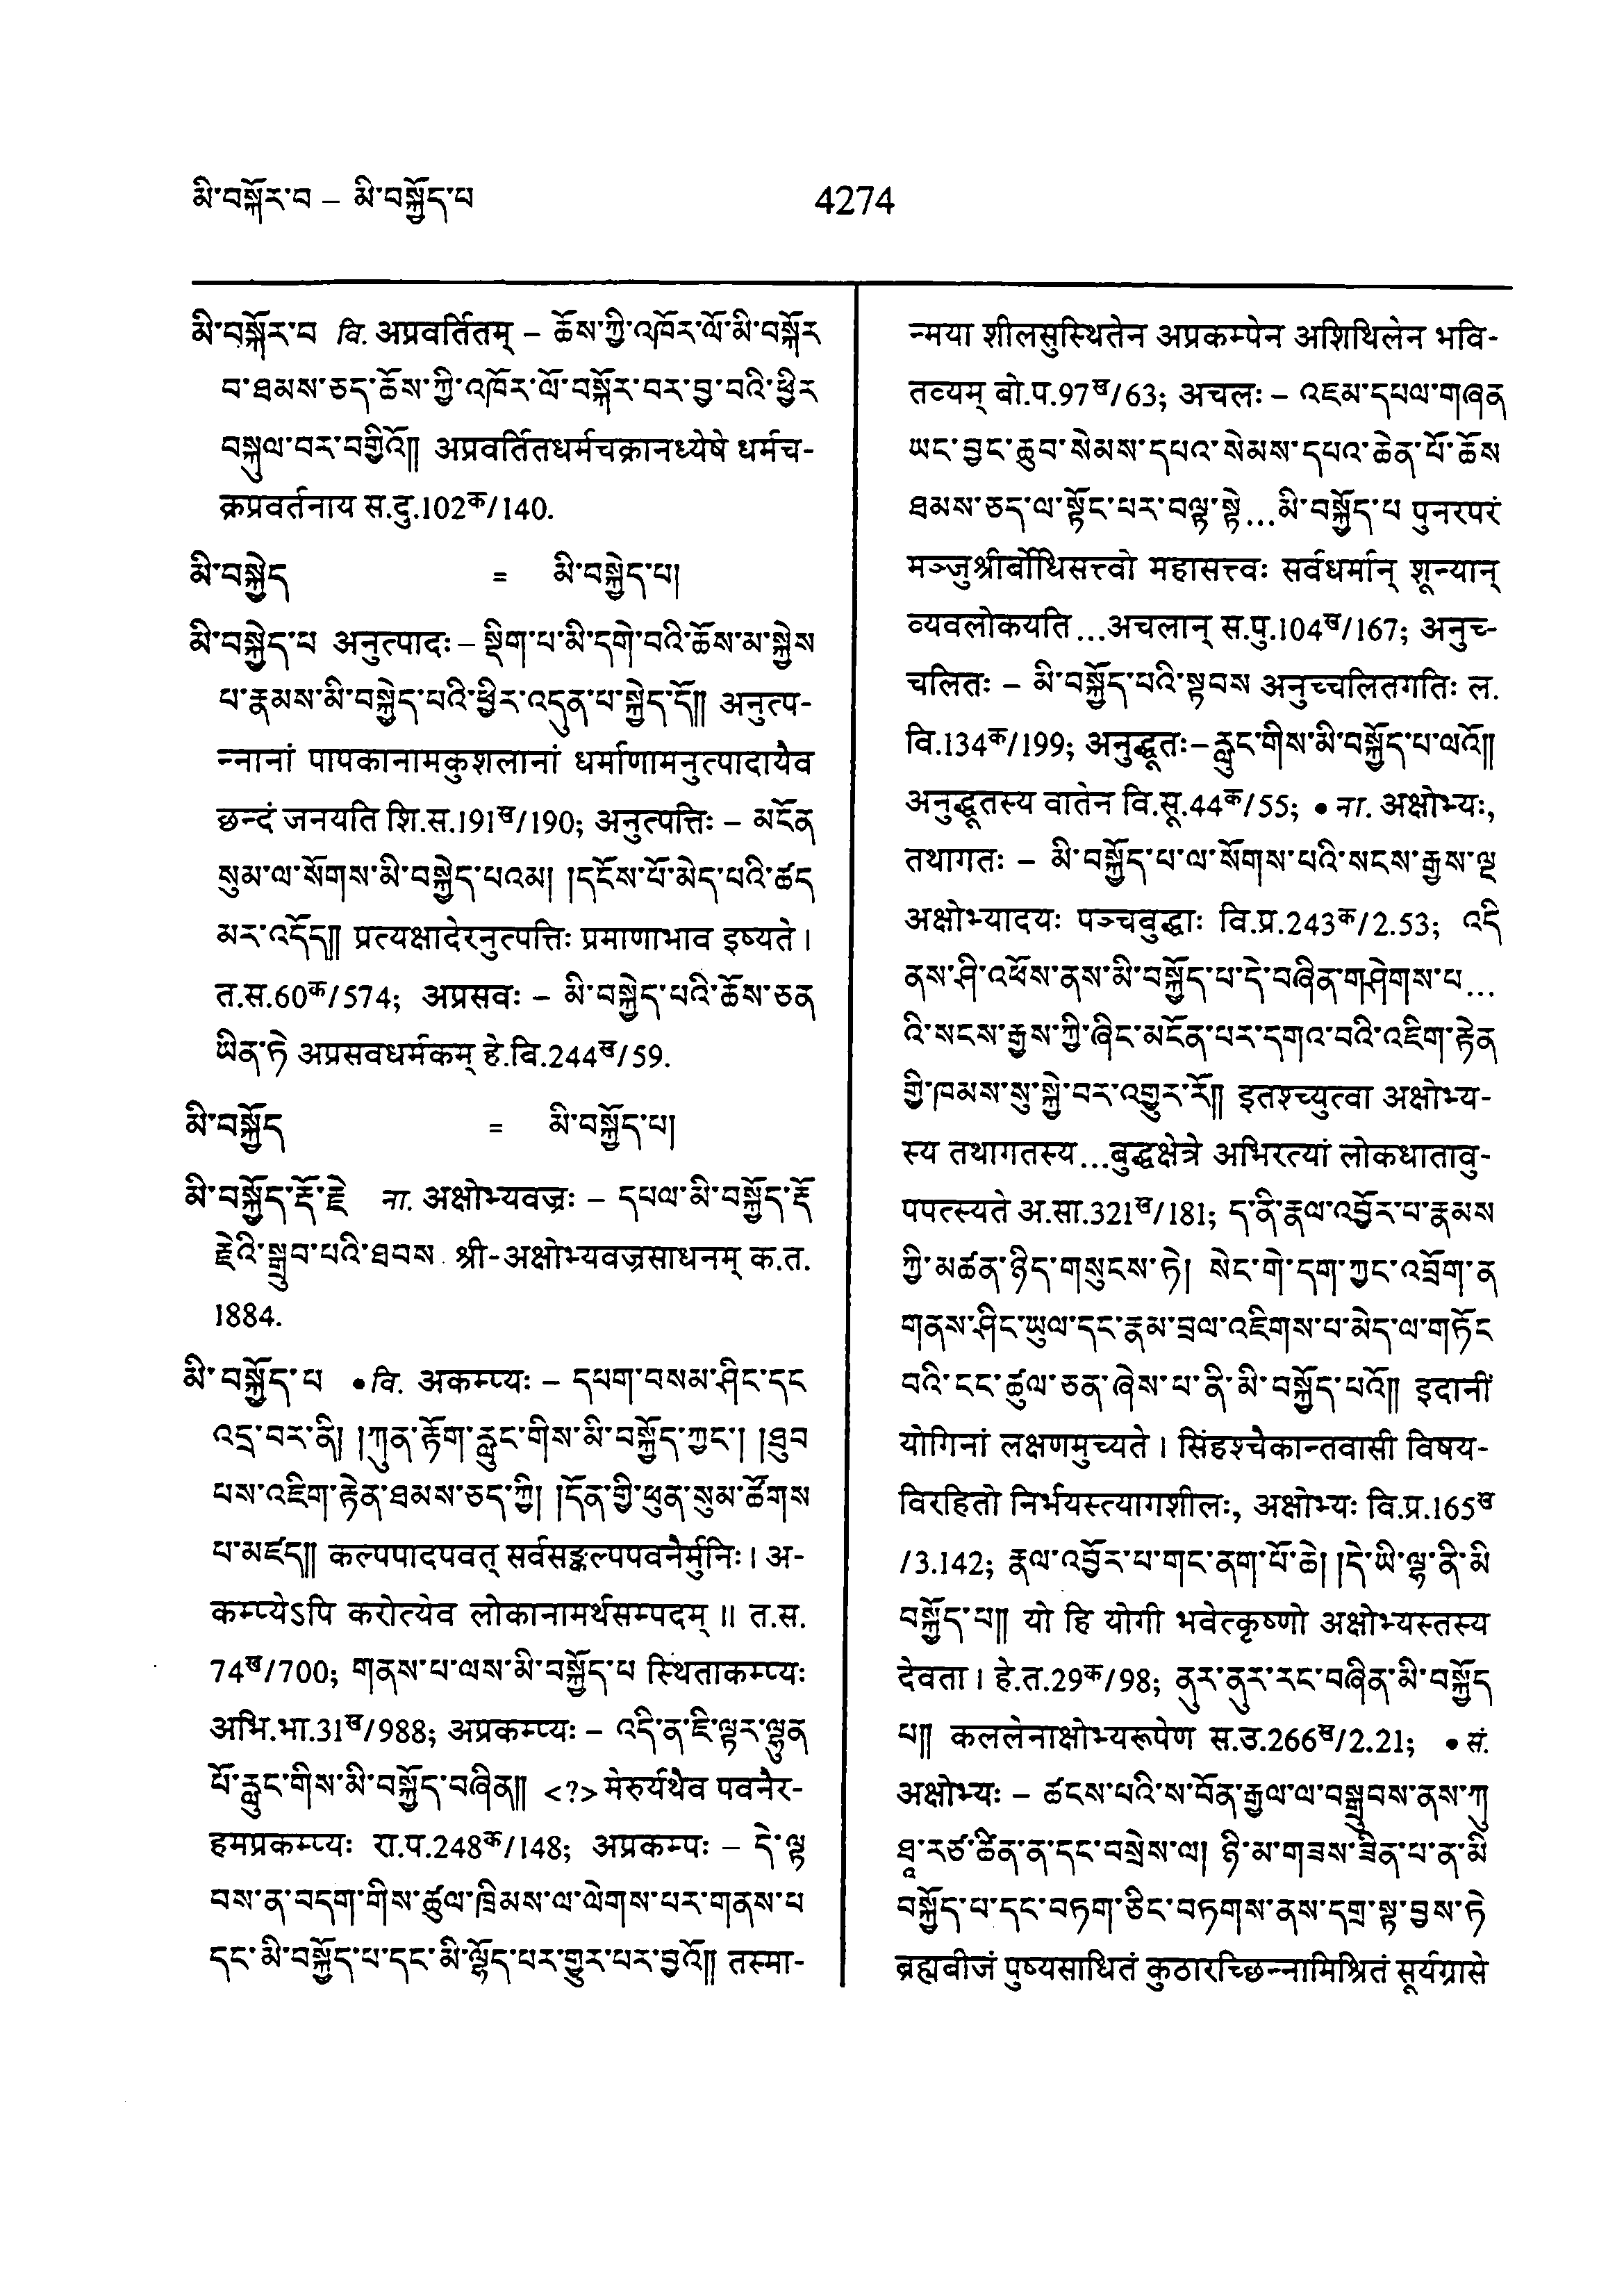 མི་བསྐོར་བ – མི་བསྐྱོད་པ
4274
མི་བསྐོར་བ वि. अप्रवर्तितम् – ཆོས་ཀྱི་འཁོར་ལོ་མི་བསྐོར
བ་ཐམས་ཅད་ཆོས་ཀྱི་འཁོར་ལོ་བསྐོར་བར་བྱ་བའི་ཕྱིར
བསྐུལ་བར་བགྱིའོ།། अप्रवर्तितधर्मचक्रानध्येषे धर्मच-
क्रप्रवर्तनाय स.दु.102क/140.
མི་བསྐྱེད = མི་བསྐྱེད་པ།
མི་བསྐྱེད་པ अनुत्पादः – སྡིག་པ་མི་དགེ་བའི་ཆོས་མ་སྐྱེས
པ་རྣམས་མི་བསྐྱེད་པའི་ཕྱིར་འདུན་པ་སྐྱེད་དོ།། अनुत्प-
न्नानां पापकानामकुशलानां धर्माणामनुत्पादायैव
छन्दं जनयति शि.स.191ख/190; अनुत्पत्तिः – མངོན
སུམ་ལ་སོགས་མི་བསྐྱེད་པའམ། །དངོས་པོ་མེད་པའི་ཚད
མར་འདོད།། प्रत्यक्षादेरनुत्पत्तिः प्रमाणाभाव इष्यते ।
त.स.60क/574; अप्रसवः – མི་བསྐྱེད་པའི་ཆོས་ཅན
ཡིན་ཏེ अप्रसवधर्मकम् हे.बि.244ख/59.
མི་བསྐྱོད = མི་བསྐྱོད་པ།
མི་བསྐྱོད་རྡོ་རྗེ ना. अक्षोभ्यवज्रः – དཔལ་མི་བསྐྱོད་རྡོ
རྗེའི་སྒྲུབ་པའི་ཐབས श्री-अक्षोभ्यवज्रसाधनम् क.त.
1884.
མི་བསྐྱོད་པ • वि. अकम्प्यः – དཔག་བསམ་ཤིང་དང
འདྲ་བར་ནི། །ཀུན་རྟོག་རླུང་གིས་མི་བསྐྱོད་ཀྱང་། །ཐུབ
པས་འཇིག་རྟེན་ཐམས་ཅད་ཀྱི། །དོན་གྱི་ཕུན་སུམ་ཚོགས
པ་མཛད།། कल्पपादपवत् सर्वसङ्कल्पपवनैर्मुनिः । अ-
कम्प्येऽपि करोत्येव लोकानामर्थसम्पदम् ॥ त.स.
74ख/700; གནས་པ་ལས་མི་བསྐྱོད་པ स्थिताकम्प्यः
अभि.भा.31ख/988; अप्रकम्प्यः – འདི་ན་ཇི་ལྟར་ལྷུན
པོ་རླུང་གིས་མི་བསྐྱོད་བཞིན།། <?> मेरुर्यथैव पवनैर-
हमप्रकम्प्यः रा.प.248क/148; अप्रकम्पः – དེ་ལྟ
བས་ན་བདག་གིས་ཚུལ་ཁྲིམས་ལ་ལེགས་པར་གནས་པ
དང་མི་བསྐྱོད་པ་དང་མི་ལྷོད་པར་གྱུར་པར་བྱའོ།། तस्मा-
न्मया शीलसुस्थितेन अप्रकम्पेन अशिथिलेन भवि-
तव्यम् बो.प.97ख/63; अचलः – འཇམ་དཔལ་གཞན
ཡང་བྱང་ཆུབ་སེམས་དཔའ་སེམས་དཔའ་ཆེན་པོ་ཆོས
ཐམས་ཅད་ལ་སྟོང་པར་བལྟ་སྟེ...མི་བསྐྱོད་པ पुनरपरं
मञ्जुश्रीर्बोधिसत्त्वो महासत्त्वः सर्वधर्मान् शून्यान्
व्यवलोकयति...अचलान् स.पु.104ख/167; अनुच्-
चलितः – མི་བསྐྱོད་པའི་སྟབས अनुच्चलितगतिः ल.
वि.134क/199; अनुद्धूतः – རླུང་གིས་མི་བསྐྱོད་པ་ལའོ།།
अनुद्धूतस्य वातेन वि.सू.44क/55; • ना. अक्षोभ्यः,
तथागतः – མི་བསྐྱོད་པ་ལ་སོགས་པའི་སངས་རྒྱས་ལྔ
अक्षोभ्यादयः पञ्चबुद्धाः वि.प्र.243क/2.53; འདི
ནས་ཤི་འཕོས་ནས་མི་བསྐྱོད་པ་དེ་བཞིན་གཤེགས་པ...
འི་སངས་རྒྱས་ཀྱི་ཞིང་མངོན་པར་དགའ་བའི་འཇིག་རྟེན
གྱི་ཁམས་སུ་སྐྱེ་བར་འགྱུར་རོ།། इतश्च्युत्वा अक्षोभ्य-
स्य तथागतस्य...बुद्धक्षेत्रे अभिरत्यां लोकधातावु-
पपत्स्यते अ.सा.321ख/181; ད་ནི་རྣལ་འབྱོར་པ་རྣམས
ཀྱི་མཚན་ཉིད་གསུངས་ཏེ། སེང་གེ་དག་ཀྱང་འབྲོག་ན
གནས་ཤིང་ཡུལ་དང་རྣམ་བྲལ་འཇིགས་པ་མེད་ལ་གཏོང
བའི་ངང་ཚུལ་ཅན་ཞེས་པ་ནི་མི་བསྐྱོད་པའོ།། इदानीं
योगिनां लक्षणमुच्यते । सिंहश्चैकान्तवासी विषय-
विरहितो निर्भयस्त्यागशीलः, अक्षोभ्यः वि.प्र.165ख
/3.142; རྣལ་འབྱོར་པ་གང་ནག་པོ་ཆེ། །དེ་ཡི་ལྷ་ནི་མི
བསྐྱོད་པ།། यो हि योगी भवेत्कृष्णो अक्षोभ्यस्तस्य
देवता । हे.त.29क/98; ནུར་ནུར་རང་བཞིན་མི་བསྐྱོད
པ།། कललेनाक्षोभ्यरूपेण स.उ.266ख/2.21; • सं.
अक्षोभ्यः – ཚངས་པའི་ས་བོན་རྒྱལ་ལ་བསྒྲུབས་ནས་ཀུ
ཐཱ་རཙ་ཚིན་ན་དང་བསྲེས་ལ། ཉི་མ་གཟས་ཟིན་པ་ན་མི
བསྐྱོད་པ་དང་བཏག་ཅིང་བཏགས་ནས་དགྲ་སྟ་བྱས་ཏེ
ब्रह्मबीजं पुष्यसाधितं कुठारच्छिन्नामिश्रितं सूर्यग्रासे